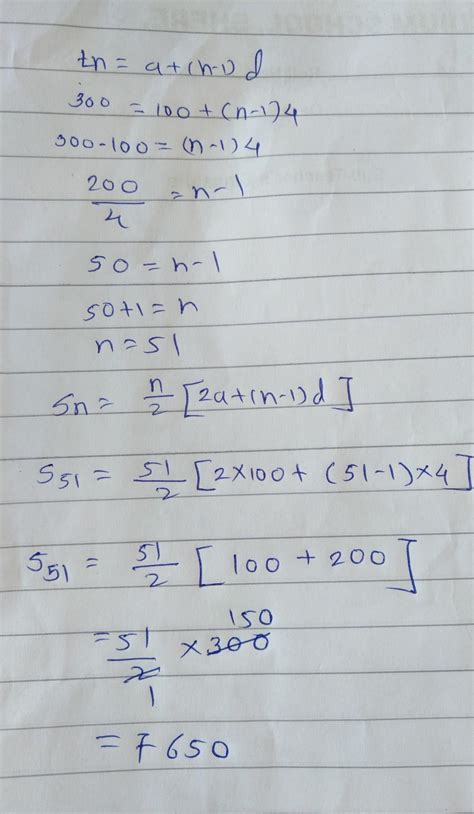 tn = a+(n-1) d
300 = 100 + (n-1)4
300-100 = (n-1)4
200/4 = n-1
50 = n-1
50+1 = n
n = 51
Sn = n/2 [2a+(n-1)d]
S51 = 51/2 [2×100 + (51-1)×4]
S51 = 51/2 [100 + 200]
150
= 51/2 × 300
1
= 7650